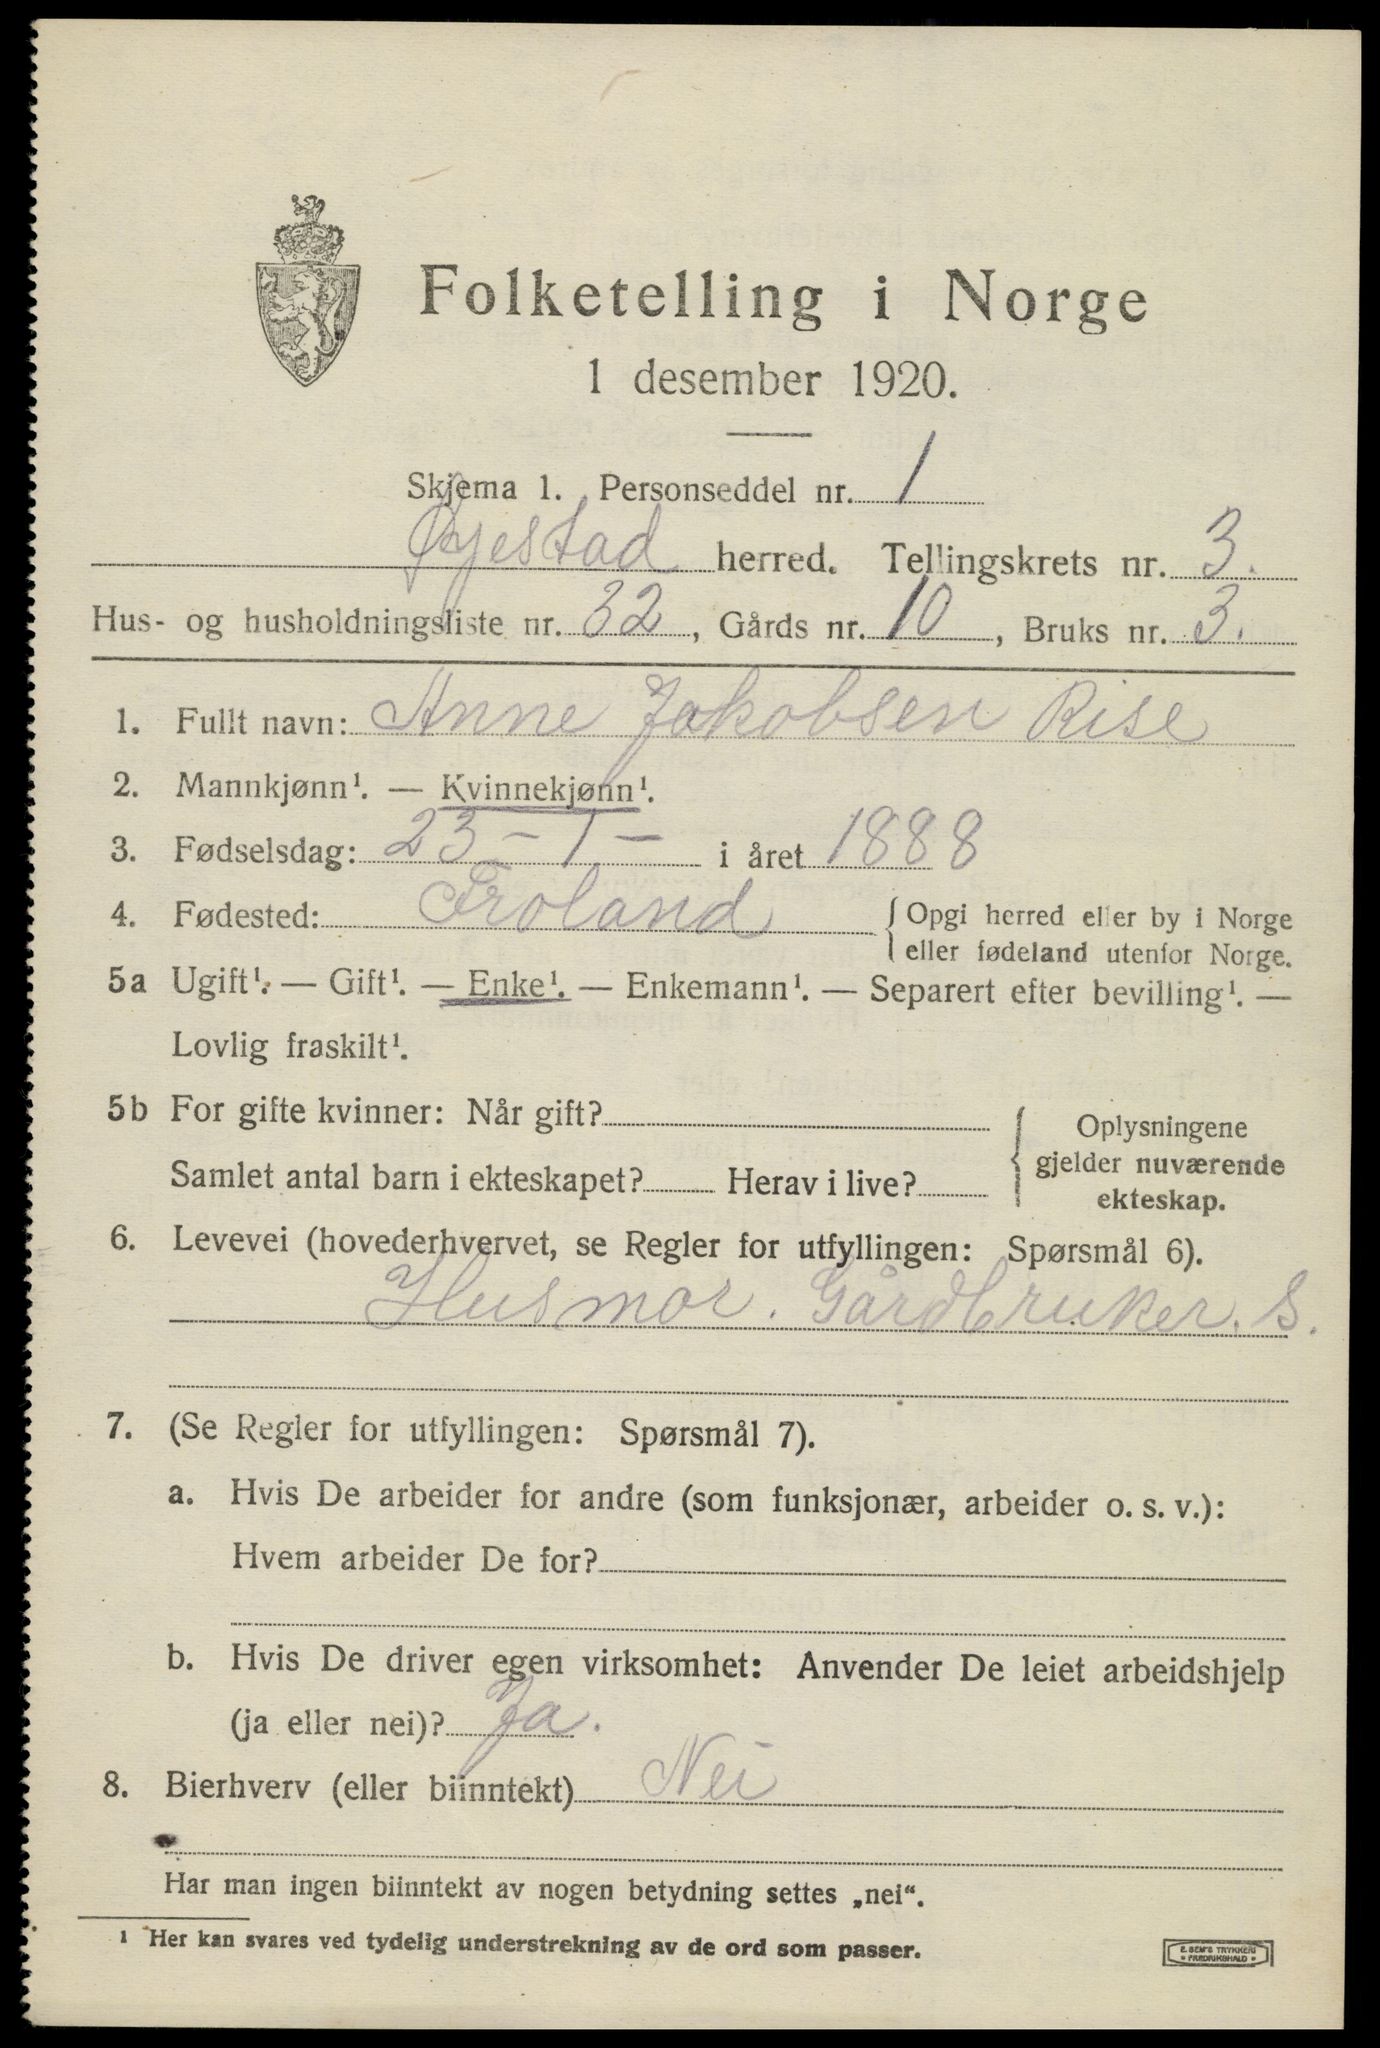 Folketelling i Norge
1 desember 1920.
Skjema 1. Personseddel nr. 1
Øyestad herred. Tellingskrets nr. 3.
Hus- og husholdningsliste nr. 32, Gårds nr. 10, Bruks nr. 3.
1. Fullt navn: Anne Jakobsen Rise
2. Mannkjønn¹. — Kvinnekjønn¹.
3. Fødselsdag: 23 – 1 – i året 1888
4. Fødested: Froland { Opgi herred eller by i Norge
eller fødeland utenfor Norge.
5a Ugift¹. — Gift¹. — Enke¹. — Enkemann¹. — Separert efter bevilling¹. —
Lovlig fraskilt¹.
5b For gifte kvinner: Når gift?
Samlet antal barn i ekteskapet? Herav i live?
{ Oplysningene
gjelder nuværende
ekteskap.
6. Levevei (hovederhvervet, se Regler for utfyllingen: Spørsmål 6).
Husmor. Gårdbruker. S.
7. (Se Regler for utfyllingen: Spørsmål 7).
a. Hvis De arbeider for andre (som funksjonær, arbeider o. s. v.):
Hvem arbeider De for?
b. Hvis De driver egen virksomhet: Anvender De leiet arbeidshjelp
(ja eller nei)? Ja.
8. Bierhverv (eller biinntekt) Nei
Har man ingen biinntekt av nogen betydning settes „nei“.
¹ Her kan svares ved tydelig understrekning av de ord som passer.
E. SEM'S TRYKKERI
• FREDRIKSHALD •